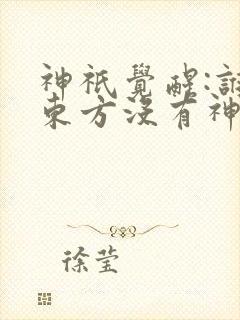 神祇覺醒:誰
東方沒有神
徐莹